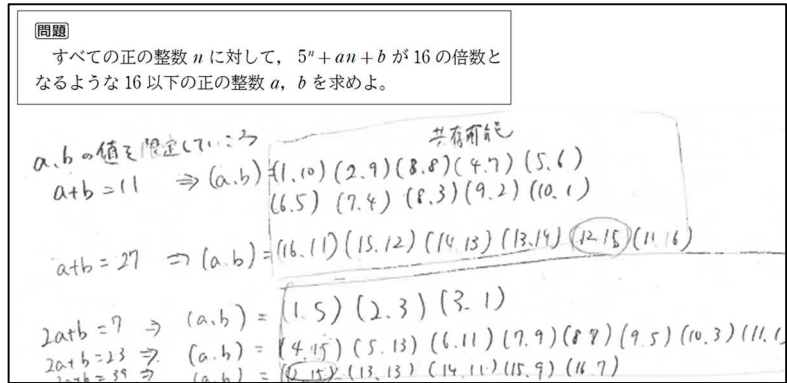 問題
すべての正の整数 n に対して， 5ⁿ + an + b が 16 の倍数と
なるような 16 以下の正の整数 a，b を求めよ。
a、bの値を限定していこう
共有可能
a+b=11 ⇒ (a.b) = (1.10) (2.9) (8.8) (4.7) (5.6)
(6.5) (7.4) (8.3) (9.2) (10.1)
a+b=27 ⇒ (a.b) = (16.11) (15.12) (14.13) (13.14) (12.15) (11.16)
2a+b=7 ⇒ (a.b) = (1.5) (2.3) (3.1)
2a+b=23 ⇒ (a.b) = (4.15) (5.13) (6.11) (7.9) (8.7) (9.5) (10.3) (11.1
2a+b=39 ⇒ (a.b) = (12.15) (13.13) (14.11) (15.9) (16.7)